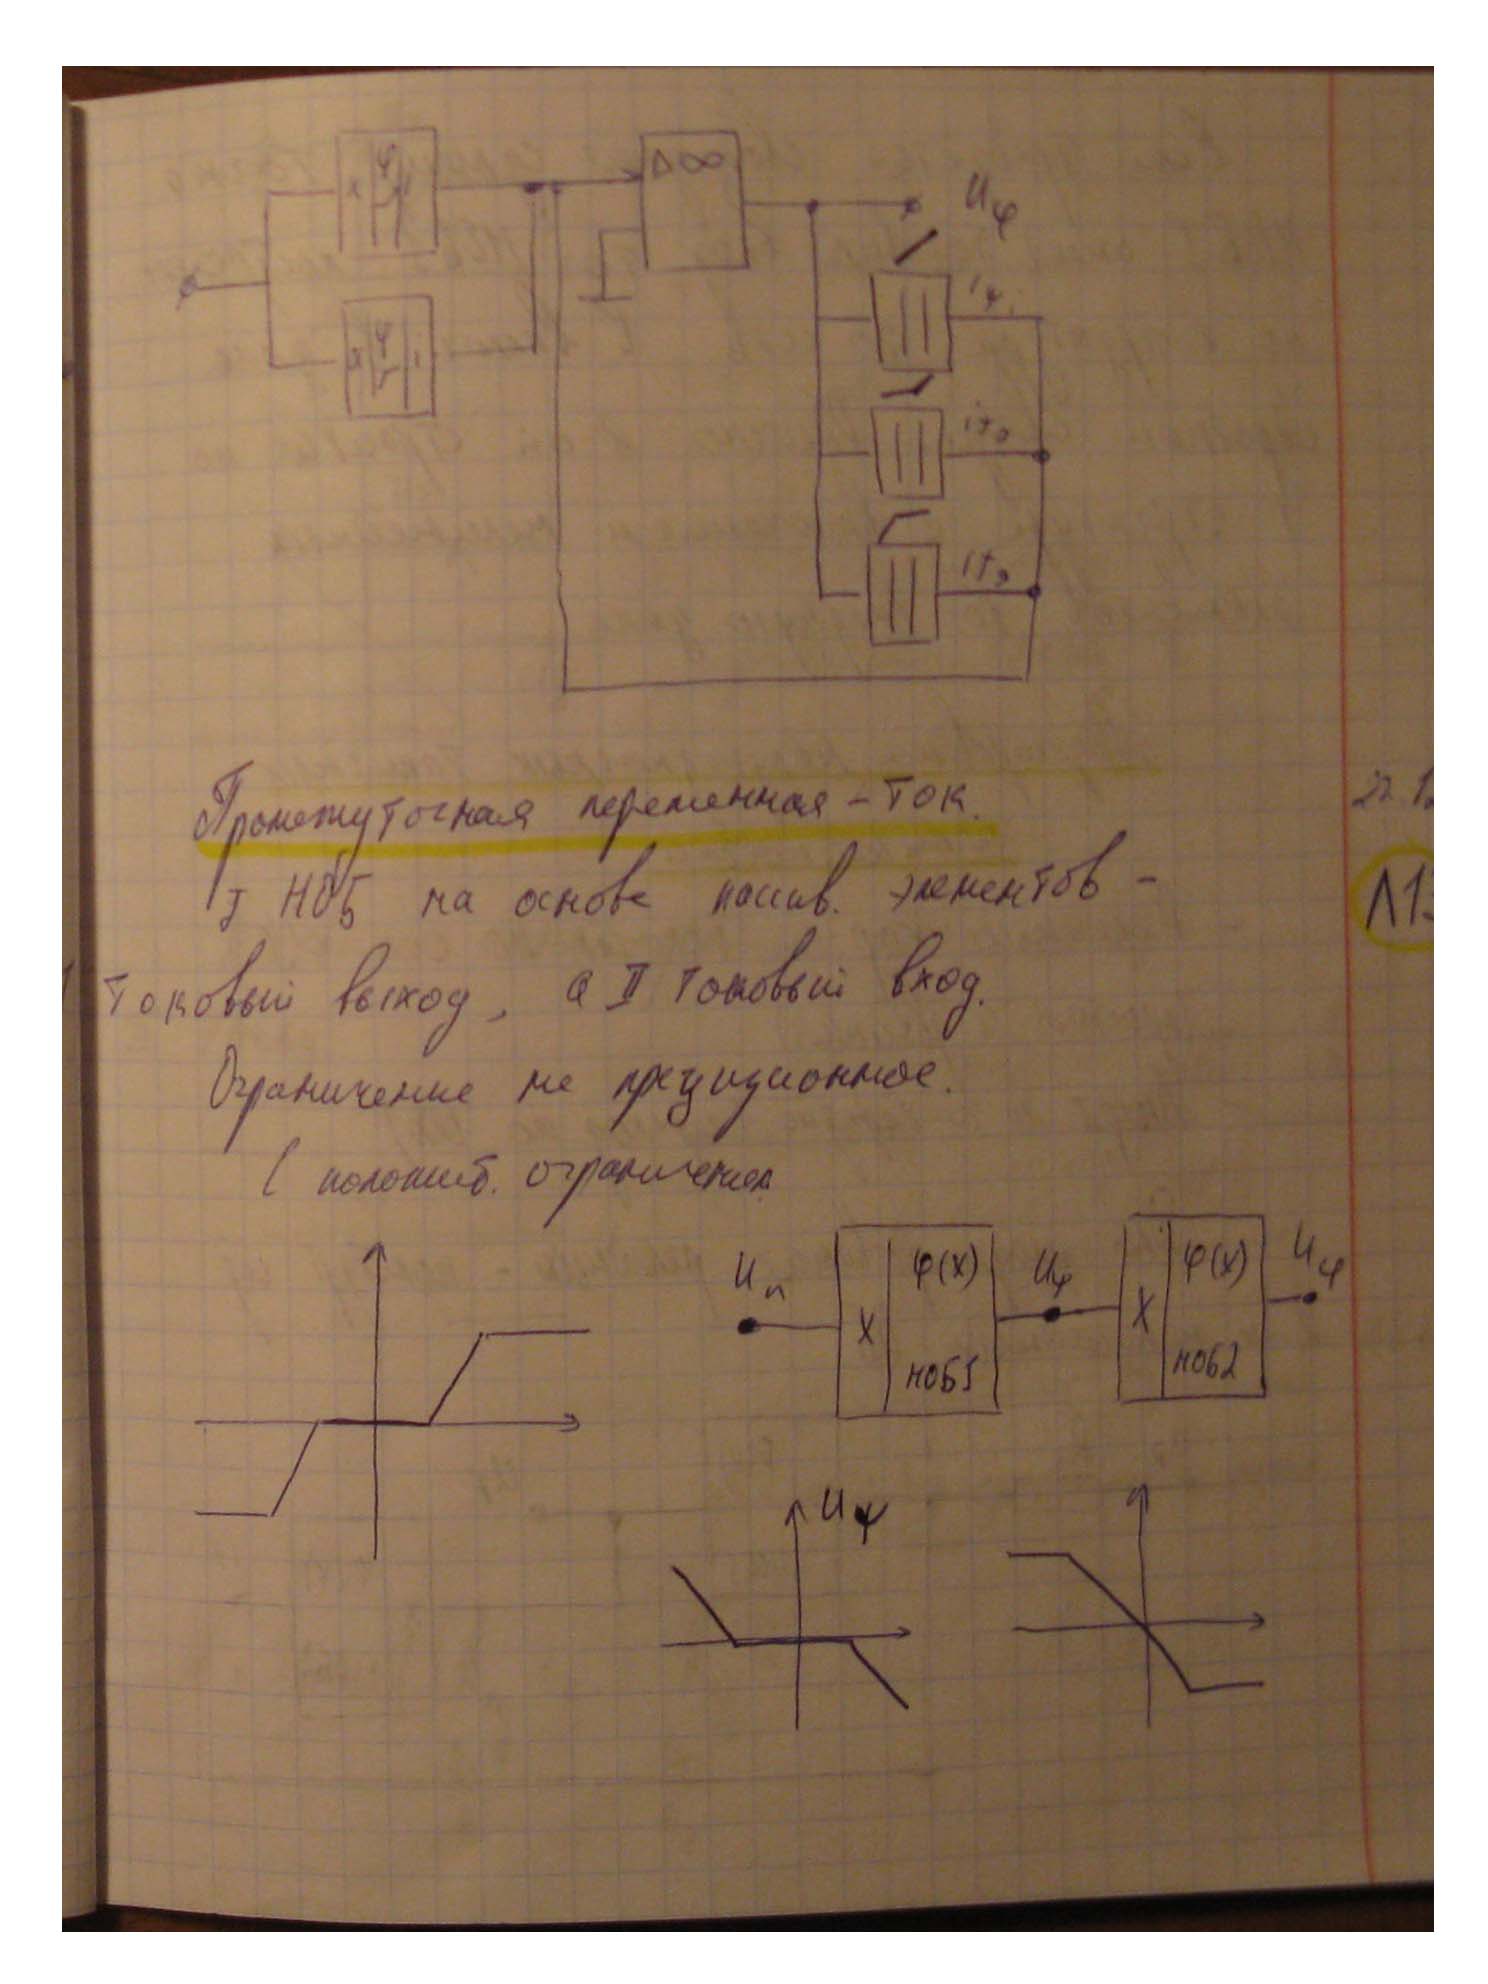 Δ∞
Uφ
Промежуточная переменная – ток.
I НОБ на основе пассив. элементов –
токовый выход, а II токовый вход.
Ограничение не прецизионное.
( положит. ограничения
Uп
X
φ(x)
НОБ1
Uψ
X
φ(x)
НОБ2
Uφ
Uψ